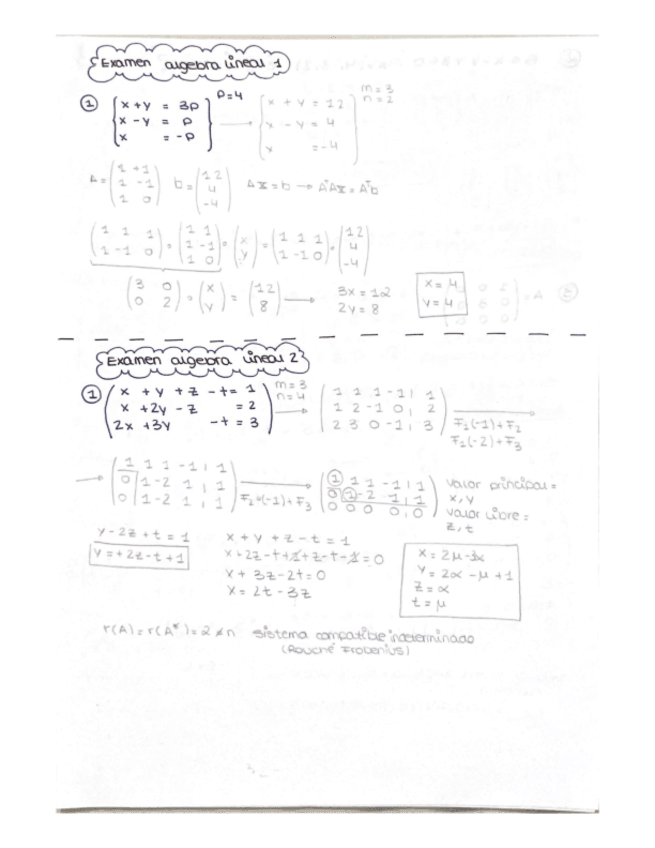 Examen algebra lineal 1
① { x + y = 3p
x - y = p
x = -p } p=4 → { x + y = 12
x - y = 4
x = -4 } m = 3
n = 2
A = ( 1 +1
1 -1
1 0 ) b = ( 12
4
-4 ) Ax = b → AᵀAx = Aᵀb
( 1 1 1
1 -1 0 ) · ( 1 1
1 -1
1 0 ) · ( x
y ) = ( 1 1 1
1 -1 0 ) · ( 12
4
-4 )
( 3 0
0 2 ) · ( x
y ) = ( 12
8 ) → 3x = 12
2y = 8
x = 4
y = 4
Examen algebra lineal 2
① ( x + y + z - t = 1
x + 2y - z = 2
2x + 3y - t = 3 ) m = 3
n = 4 → ( 1 1 1 -1 | 1
1 2 -1 0 | 2
2 3 0 -1 | 3 ) →
F₁(-1) + F₂
F₁(-2) + F₃
→ ( 1 1 1 -1 | 1
0 1 -2 1 | 1
0 1 -2 1 | 1 ) →
F₂·(-1) + F₃
( 1 1 1 -1 | 1
0 1 -2 1 | 1
0 0 0 0 | 0 )
valor principal =
x, y
valor libre =
z, t
y - 2z + t = 1
y = +2z - t + 1
x + y + z - t = 1
x + 2z - t + 1 + z - t - 1 = 0
x + 3z - 2t = 0
x = 2t - 3z
x = 2μ - 3α
y = 2α - μ + 1
z = α
t = μ
r(A) = r(A*) = 2 ≠ n sistema compatible indeterminado
(Rouché Frobenius)